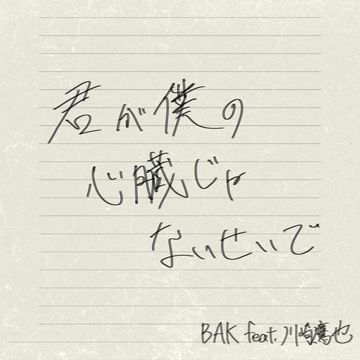 君が僕の
心臓じゃ
ないせいで
BAK feat.川崎鷹也